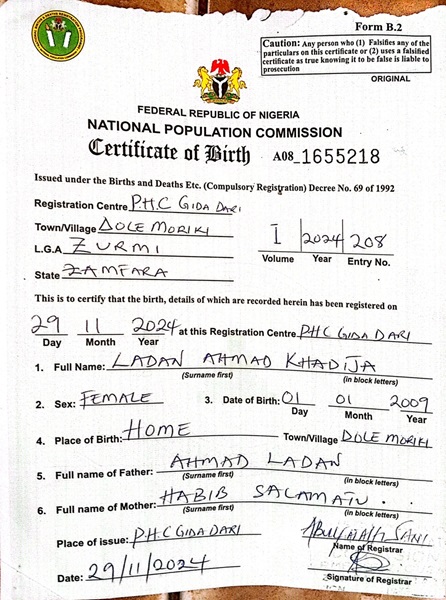 Form B.2
Caution: Any person who (1) Falsifies any of the
particulars on this certificate or (2) uses a falsified
certificate as true knowing it to be false is liable to
prosecution
ORIGINAL
FEDERAL REPUBLIC OF NIGERIA
NATIONAL POPULATION COMMISSION
Certificate of Birth A08_1655218
Issued under the Births and Deaths Etc. (Compulsory Registration) Decree No. 69 of 1992
Registration Centre P.H.C GIDA DARI
Town/Village DOLE MORIKI
L.G.A ZURMI
State ZAMFARA
I 2024 208
Volume Year Entry No.
This is to certify that the birth, details of which are recorded herein has been registered on
29 11 2024 at this Registration Centre PHC GIDA DARI
Day Month Year
1. Full Name: LADAN AHMAD KHADIJA
(Surname first) (in block letters)
2. Sex: FEMALE 3. Date of Birth: 01 01 2009
Day Month Year
4. Place of Birth: HOME Town/Village DOLE MORIKI
5. Full name of Father: AHMAD LADAN
(Surname first) (in block letters)
6. Full name of Mother: HABIB SALAMATU .
(Surname first) (in block letters)
Place of issue: P.H.C GIDA DARI SANI
Name of Registrar
Date: 29/11/2024
Signature of Registrar